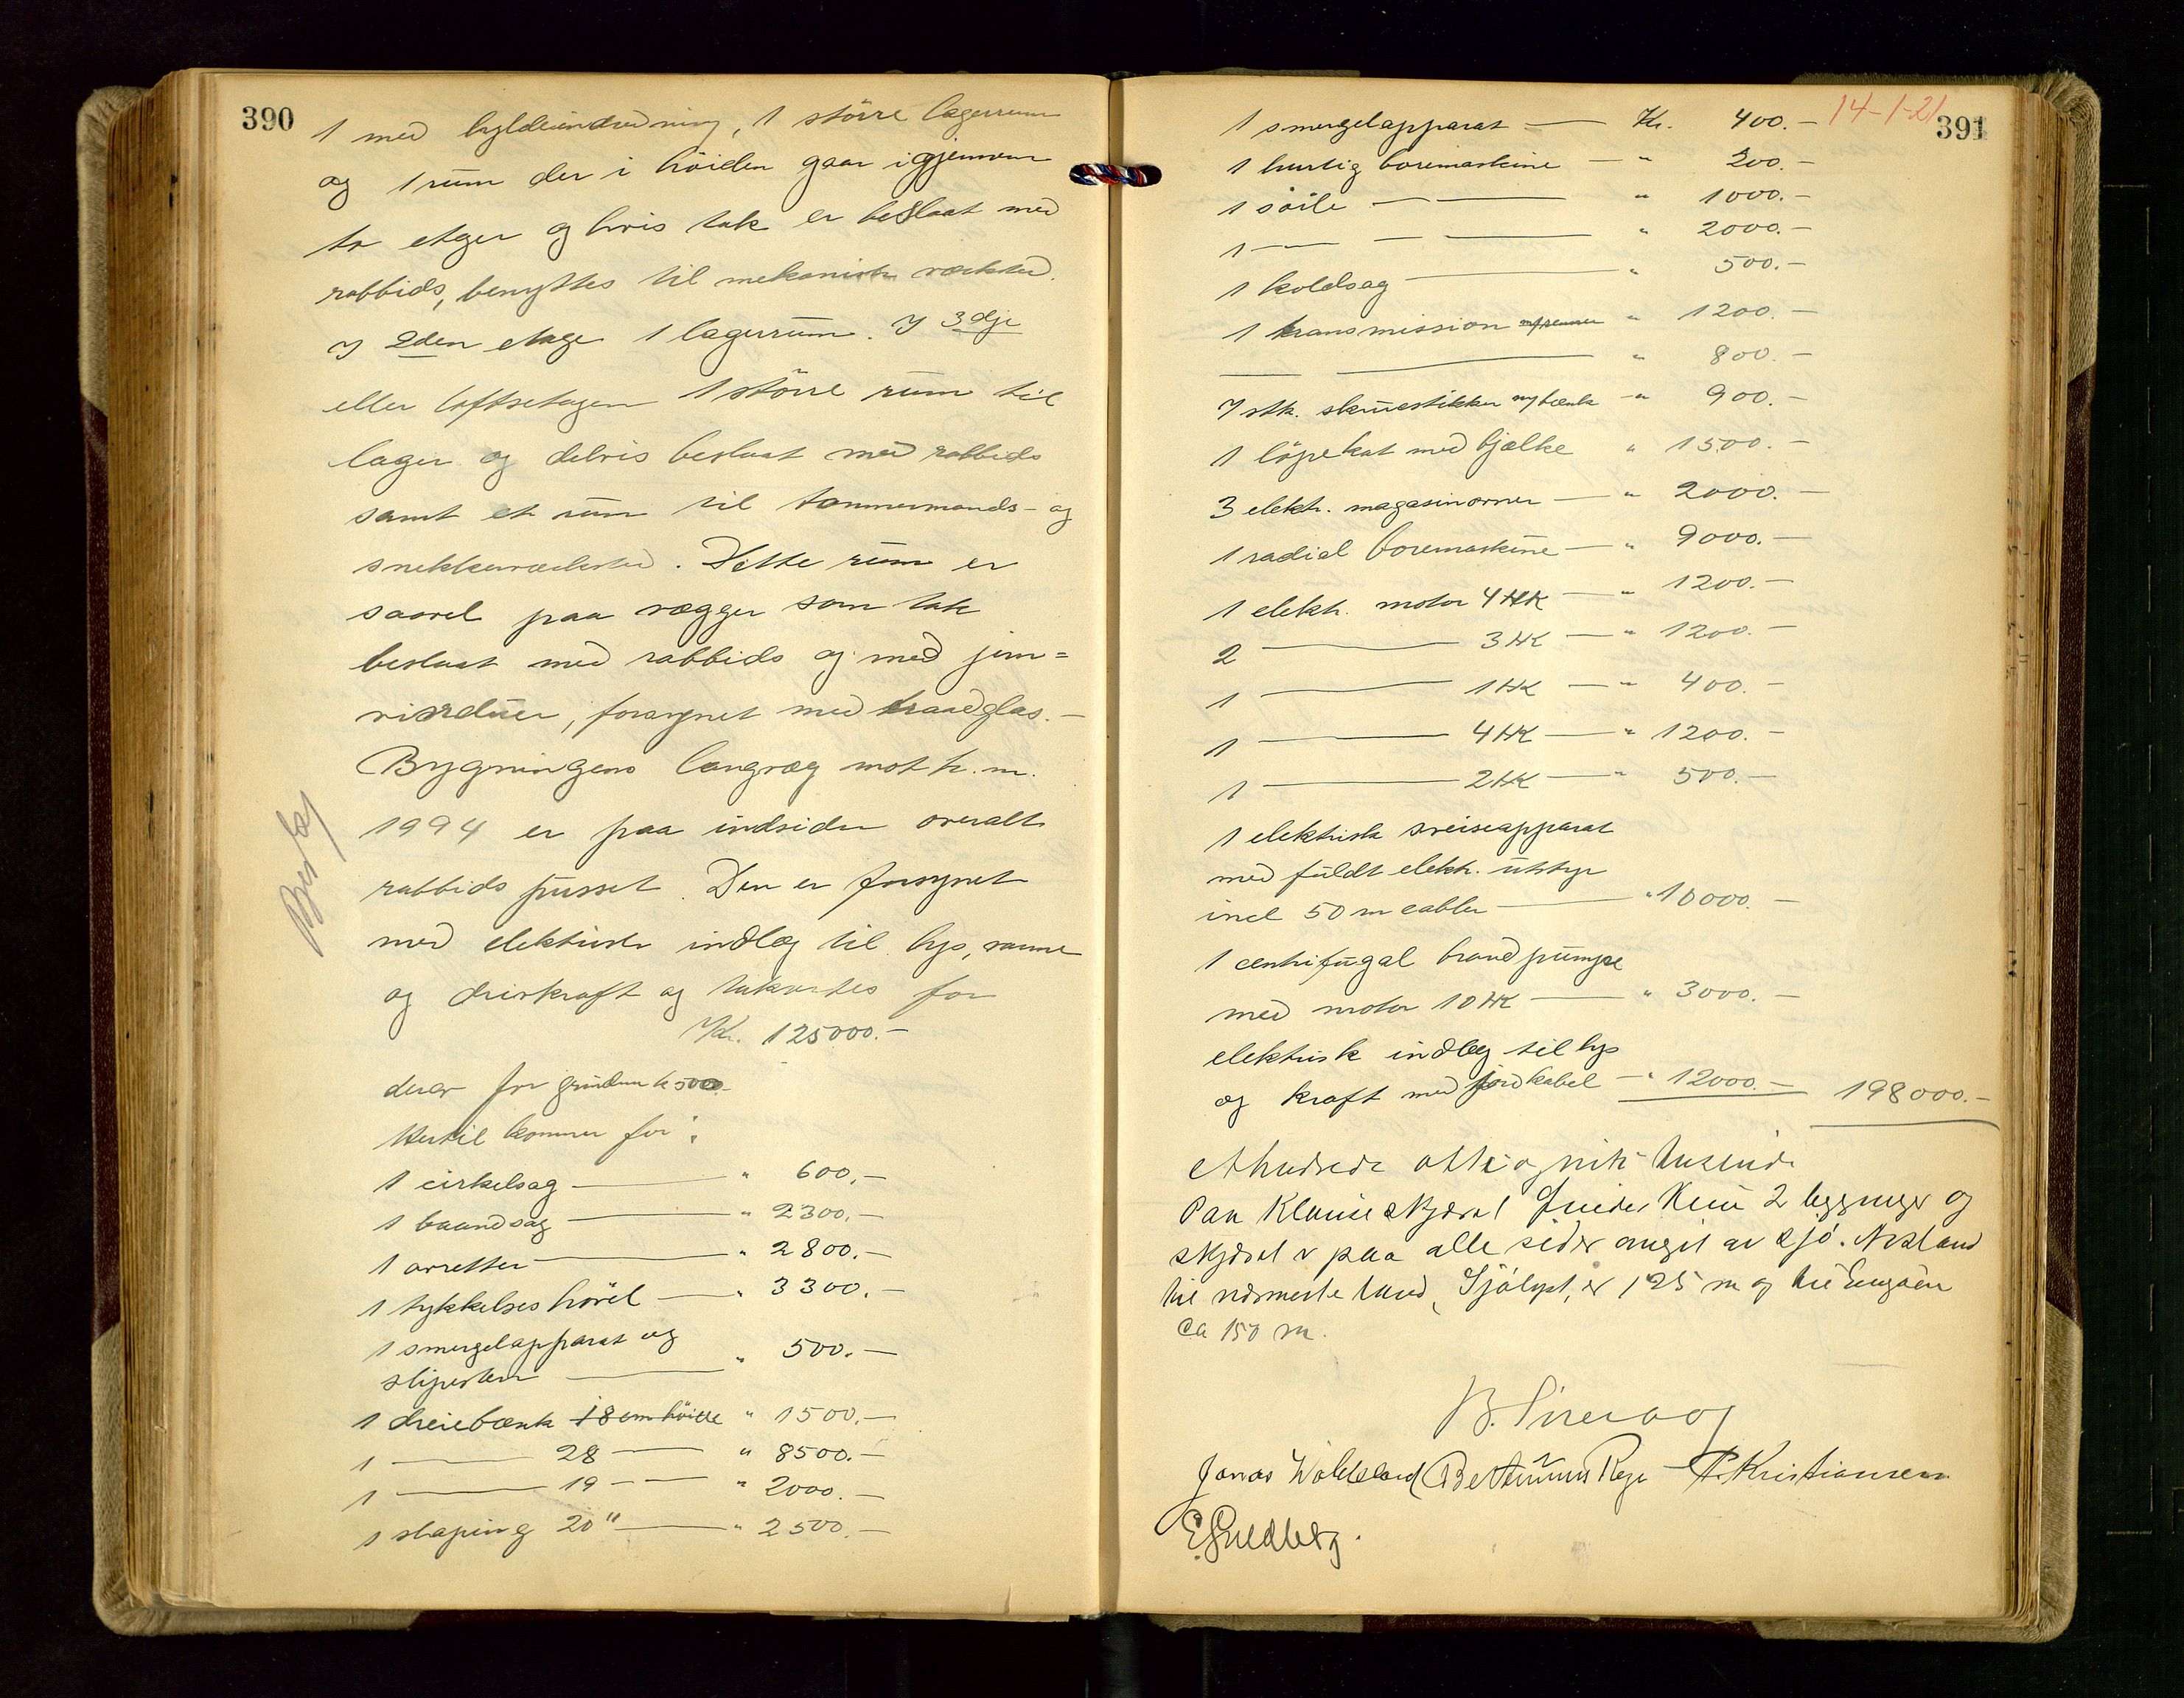 390
1 med hyldeindredning, 1 större lagerrum
og 1 rum der i höiden gaar igjennem
to etger og hvis tak er beslaat med
rabbids, benyttes til mekanisk verksted.
I 2den etage 1 lagerrum. I 3dje
eller loftsetagen 1 större rum til
lager og delvis beslaat med rabbids
samt et rum til tømmermands- og
snekkerverksted. Dette rum er
saavel paa vægger som tak
beslaat med rabbids og med jern=
vinduer, forsynet med traadglas.-
Bygningens langvæg mot h.m.
1994 er paa indsiden overalt
rabbids pusset. Den er forsynet
med elektrisk indlæg til lys, varme
og drivkraft og taksertes for
Kr. 125000.-
derav for grunden k 500.-
Hertil kommer for:
1 cirkelsag — " 600.-
1 baandsag — " 2300.-
1 avretter — " 2800.-
1 tykkelseshövel — " 3300.-
1 smergelapparat og
slipesten — " 500.-
1 dreiebænk 18 cm höide " 1500.-
1 — 28 — " 8500.-
1 — 19 — — " 2000.-
1 shaping 20" — " 2500.-
14-1-21
391
1 smergelapparat — Kr. 400.-
1 hurtig boremaskine — " 200.-
1 söile — — " 1000.-
1 — — — " 2000.-
1 koldsag — " 500.-
1 transmission m/remmer " 1200.-
— — " 800.-
7 stk. skruestikker m/bænk — " 900.-
1 löpekat med bjælke " 1500.-
3 elekt. magasinovner — " 2000.-
1 radial boremaskine — " 9000.-
1 elekt. motor 4 HK — " 1200.-
2 — 3 HK — " 1200.-
1 — 1 HK — " 400.-
1 — 4 HK — " 1200.-
1 — 2 HK — " 500.-
1 elektrisk sveiseapparat
med fuldt elekt. utstyr
incl 50 m cabler — " 10000.-
1 centrifugal brandpumpe
med motor 10 HK — " 3000.-
elektrisk indlæg til lys
og kraft med jordkabel — " 12000.- 198000.-
ethundrede otte og niti tusinde
Paa skjæret findes kun 2 bygninger og
skjæret er paa alle sider omgit av sjö. Avstand
til nærmeste land, Sjölyst, er 125 m og til Engöen
ca 150 m.
Jonas Wold Bertinius Rege P. Kristiansen
E. Guldberg.
Besty